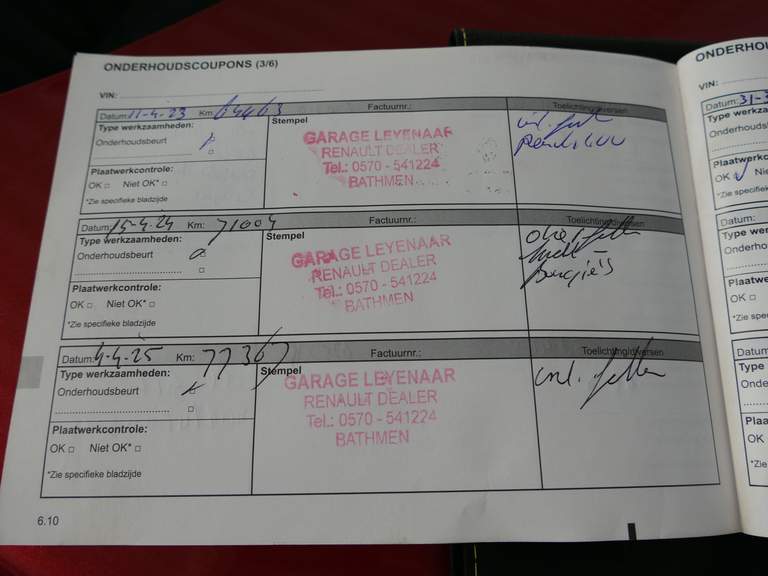 ONDERHOUDSCOUPONS (3/6)
VIN:
Datum: 11-4-23 Km: 64463 Factuurnr.: Toelichting/diversen
Type werkzaamheden:
Onderhoudsbeurt
Stempel
GARAGE LEYENAAR
RENAULT DEALER
Tel.: 0570 - 541224
BATHMEN
Plaatwerkcontrole:
OK Niet OK*
*Zie specifieke bladzijde
Datum: 15-4-24 Km: 71004 Factuurnr.: Toelichting/diversen
Type werkzaamheden:
Onderhoudsbeurt
Stempel
GARAGE LEYENAAR
RENAULT DEALER
Tel.: 0570 - 541224
BATHMEN
olie, filter
bougie's
Plaatwerkcontrole:
OK Niet OK*
*Zie specifieke bladzijde
Datum: 4-4-25 Km: 77367 Factuurnr.: Toelichting/diversen
Type werkzaamheden:
Onderhoudsbeurt
Stempel
GARAGE LEYENAAR
RENAULT DEALER
Tel.: 0570 - 541224
BATHMEN
incl. filter
Plaatwerkcontrole:
OK Niet OK*
*Zie specifieke bladzijde
6.10
ONDERHOU
VIN:
Datum: 31-3
Type werkza
Onderhouds
Plaatwerkc
OK Nie
*Zie specifie
Datum:
Type werk
Onderho
Plaatwe
OK
*Zie spe
Datum
Type
Onder
Plaa
OK
*Zie